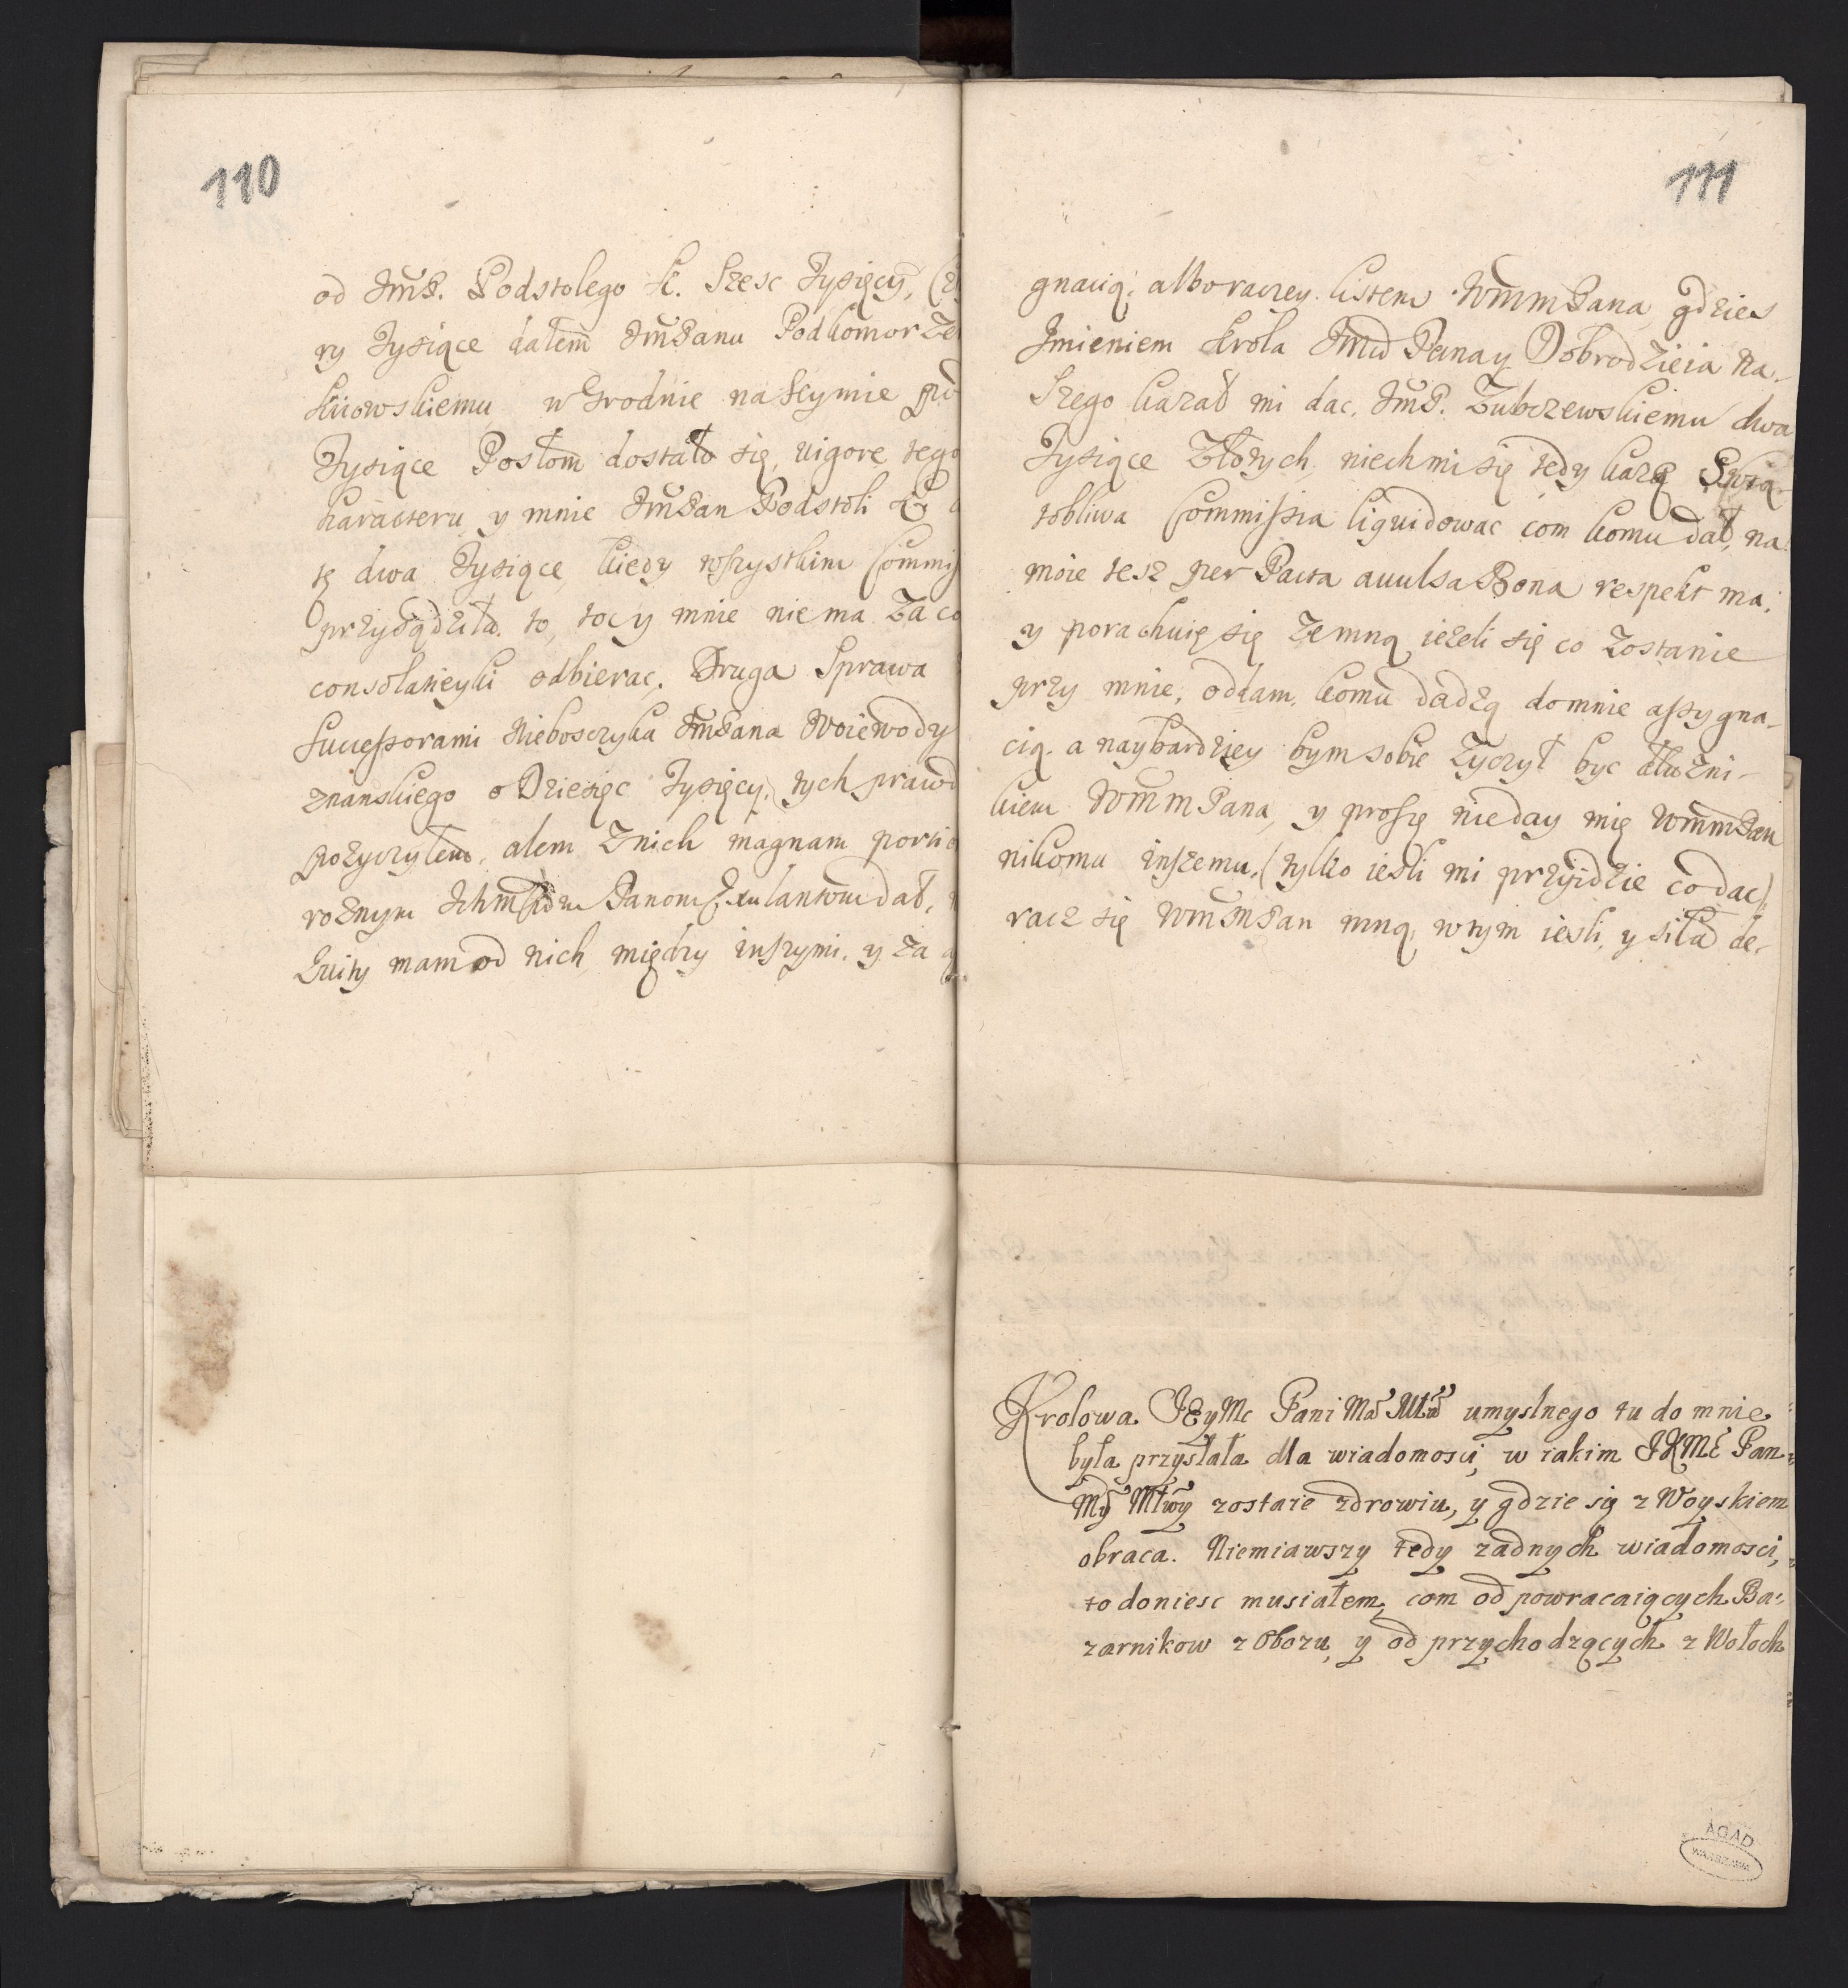 110
od JmP. Podstolego K. Szesc Tysięcy,
ry Tysiące dałem JmPanu Podkomorze
Kiiowskiemu w Grodnie na Seymie
Tysiące Posłom dostało się, uigore tego
karacteru y mnie JmPan Podstoli
tę dwa Tysiące, kiedy wszystkim Commis
przysądziła to, toc y mnie niema za co
consolatieyki odbierac. Druga Sprawa
Sucessorami Nieboszczyka JmPana Woiewody
znanskiego o Dziesięc Tysięcy, tych prawd
pozyczyłem, alem z nich magnam porti
roznym Panom Exulantom dał,
Kwity mam od nich, między inszymi. y za
111
gnacią: alboraczey listem WmmPana, gdzies
Jmieniem Krola Jmci Pana y Dobrodzieia Na-
szego kazał mi dac, JmP. Zubczewskiemu dwa
Tysiące Złotych, niech mi się tedy każą Swią-
tobliwa Commissia liquidowac com komu dał, na
moie tesz per Pacta auulsa Bona respekt ma,
y porachuię się zemną, ieżeli się co zostanie
przy mnie, oddam, komu dadzą do mnie assygna-
cią. a naybardziey bym sobie zyczył byc dłuzni-
kiem WmmPana, y proszę nieday mię WmmPan
nikomu inszemu, (tylko iesli mi przyidzie co dac)
racz się WmMPan mną, w tym iesli, y siła de-
Krolowa JEyMc Pani Ma Mtwa umyslnego tu do mnie
była przysłała dla wiadomosci, w iakim JKMC Pan
My Mtwy zostaie zdrowiu, y gdzie się z Woyskiem
obraca. Niemiawszy tedy zadnych wiadomosci,
to doniesc musiałem, com od powracaiących Ba-
zarnikow z Obozu, y od przychodzących z Wołoch
AGAD
WARSZAWA